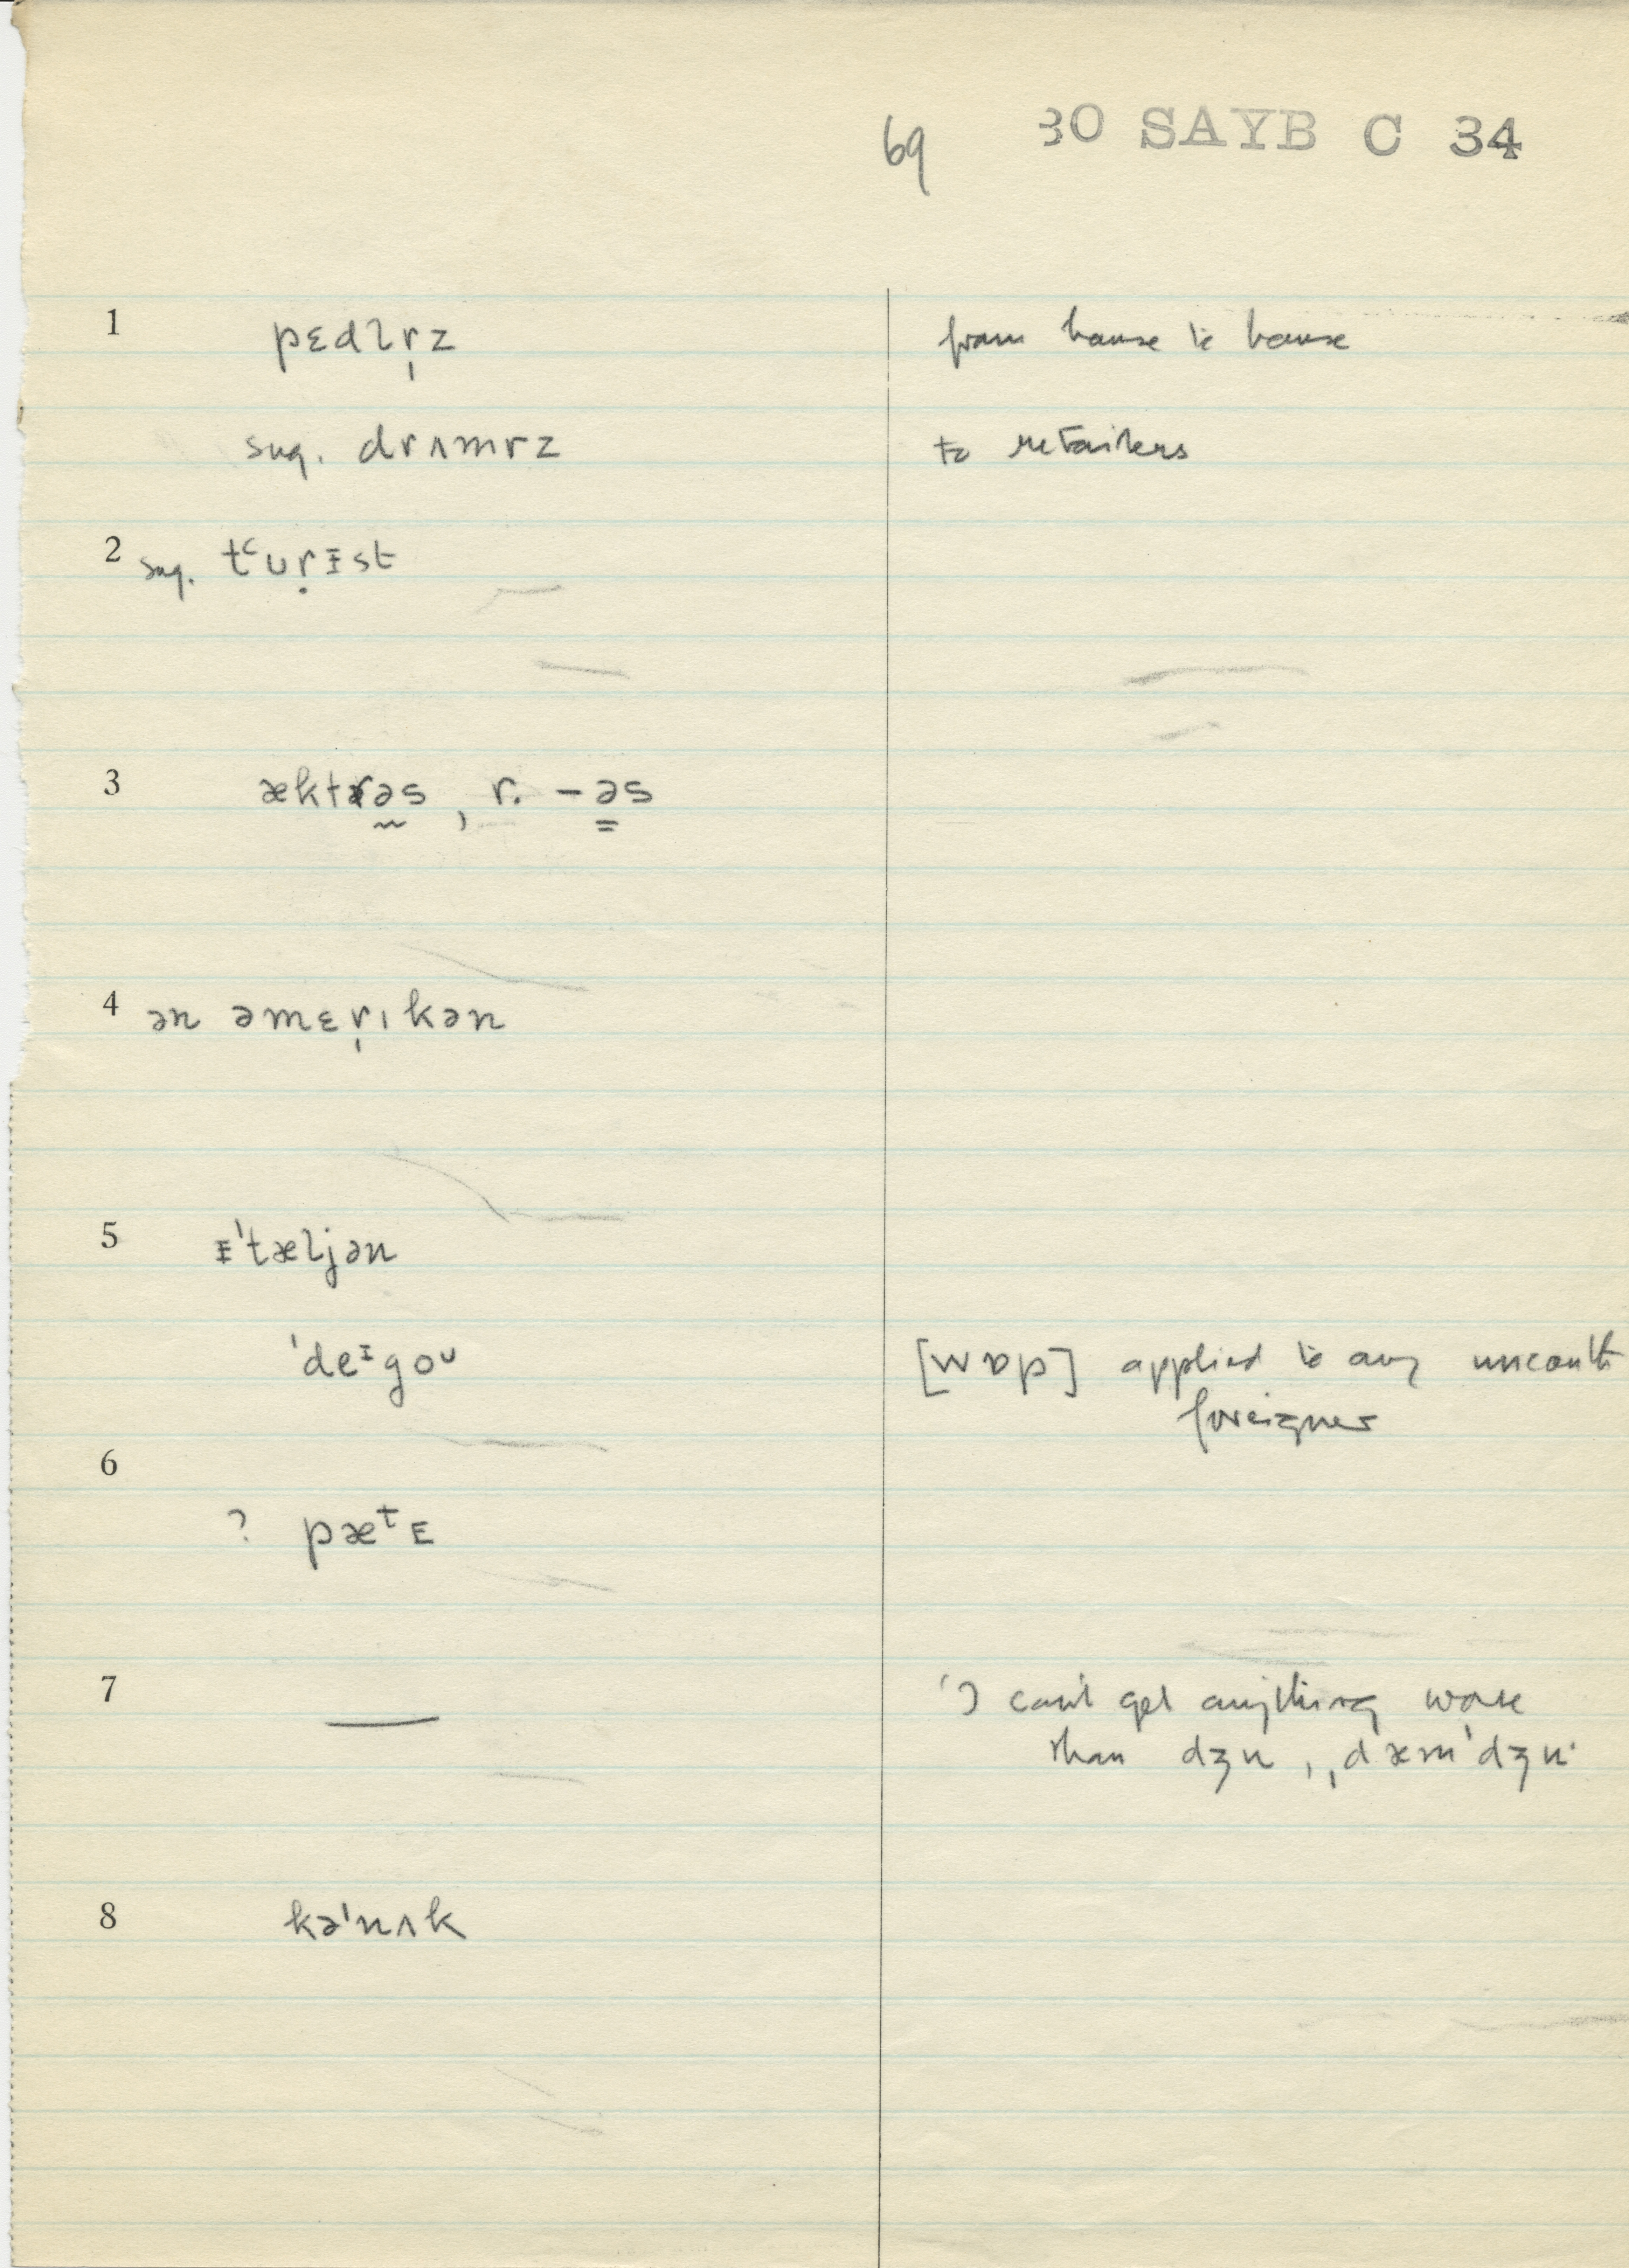 69 30 SAYB C 34
1 pɛdlr̩z from house to house
sug. drʌmrz to retailers
2 sug. tʿʊṛɪst
3 æktrə̰s, r. –ə̳s
4 ən əmɛr̩ıkən
5 ᵻˈtæljən
ˈdeᶦgoᶷ [wɒp] applied to any uncouth
foreigner
6
? pæᵗᴇ
7 — 'I can't get anything worse
than dʒu, ˌdæmˈdʒu'
8 kəˈnʌk